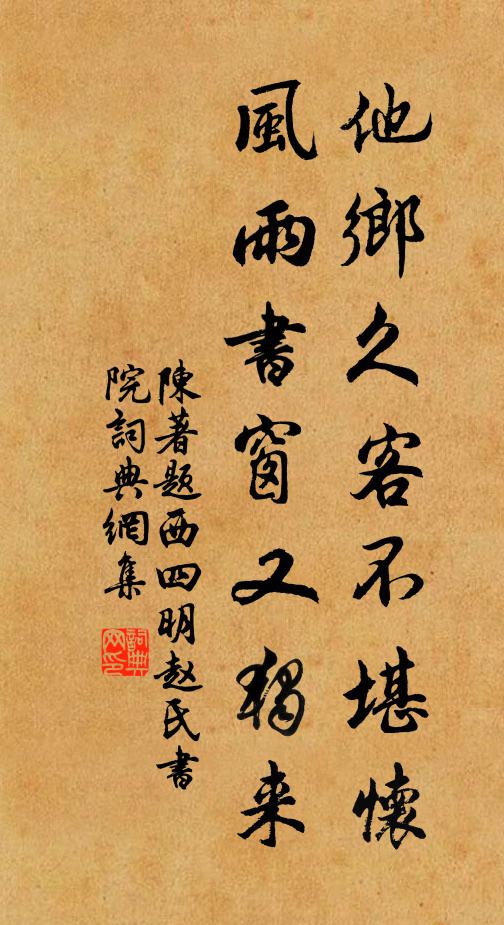 他鄉久客不堪懷
風雨書窗又獨来
陳著题西四明赵氏書
院詞典網集
詞典
网印